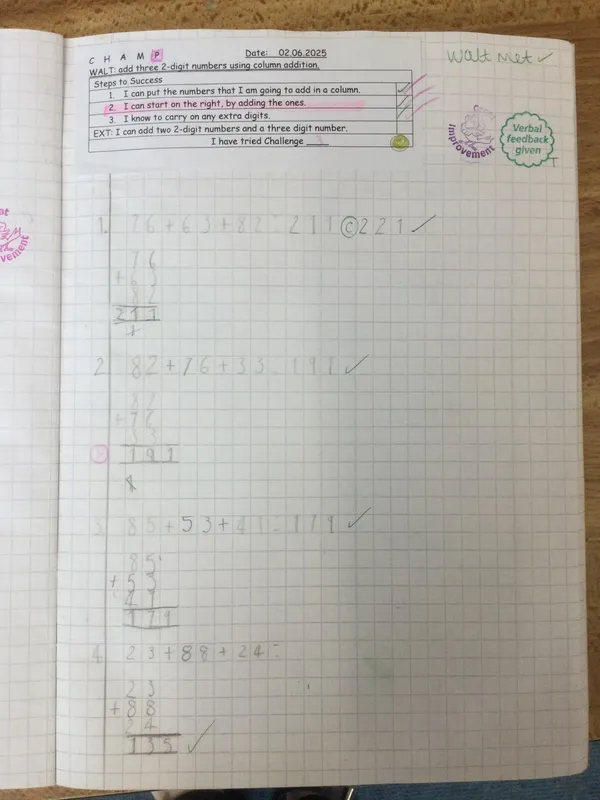 C H A M P
Date: 02.06.2025
WALT: add three 2-digit numbers using column addition.
Steps to Success
1. I can put the numbers that I am going to add in a column.
2. I can start on the right, by adding the ones.
3. I know to carry on any extra digits.
EXT: I can add two 2-digit numbers and a three digit number.
I have tried Challenge 3
Walt met ✓
Improvement
Verbal feedback given
1. 76+63+82=211 ©221 ✓
76
+63
82
211
1
2. 82+76+33=191 ✓
82
+76
33
191
1
3. 85+53+41=179 ✓
85
+53
41
179
4. 23+88+24=
23
+88
24
135 ✓